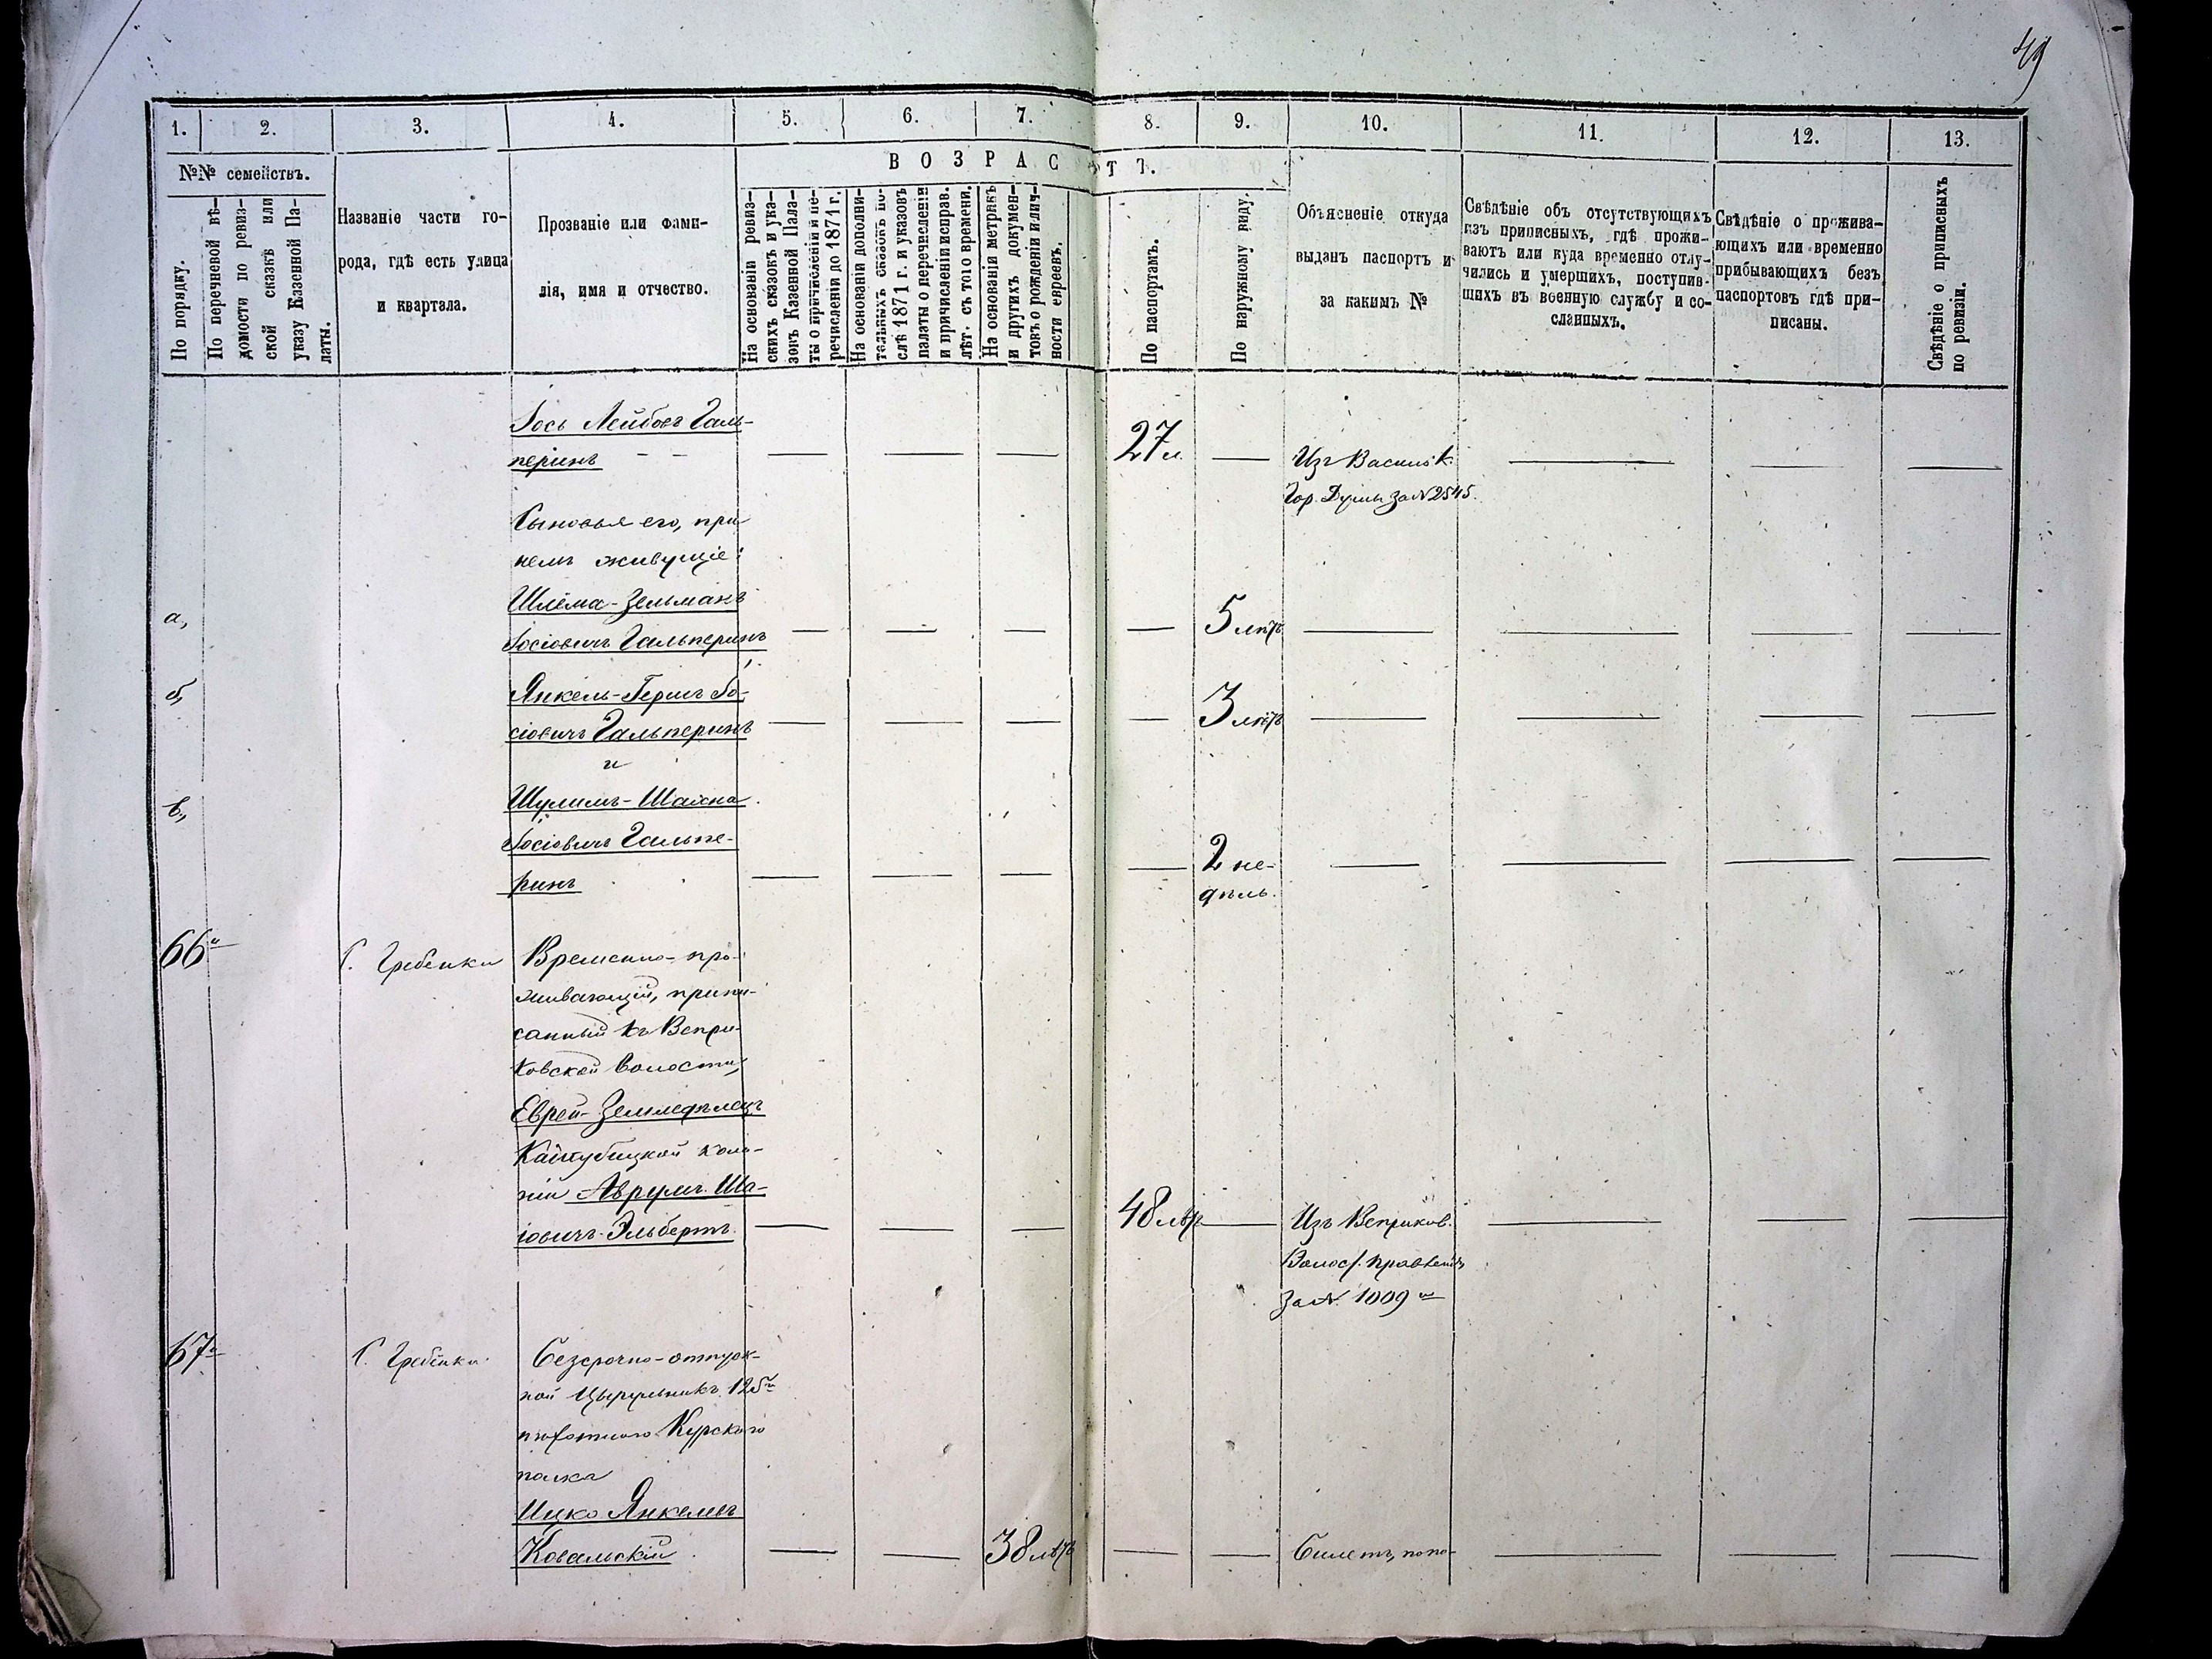 49
1. 2. 3. 4. 5. 6. 7. 8. 9. 10. 11. 12. 13.
№№ семействъ.
По порядку.
По перечневой вѣ-
домости по ревиз-
ской сказкѣ или
указу Казенной Па-
латы.
Названіе части го-
рода, гдѣ есть улица
и квартала.
Прозваніе или фами-
лія, имя и отчество.
ВОЗРАСТЪ.
На основаніи ревиз-
скихъ сказокъ и ука-
зовъ Казенной Пала-
ты о причисленіи и пе-
речисленіи до 1871 г.
На основаніи дополни-
тельныхъ сказокъ по-
слѣ 1871 г. и указовъ
палаты о перечисленіи
и причисленіи исправ.
лѣт. съ того времени.
На основаніи метрикъ
и другихъ докумен-
товъ о рожденіи и лич-
ности евреевъ.
По паспортамъ.
По наружному виду.
Объясненіе откуда
выданъ паспортъ и
за какимъ №
Свѣдѣніе объ отсутствующихъ
изъ приписныхъ, гдѣ прожи-
ваютъ или куда временно отлу-
чились и умершихъ, поступив-
шихъ въ военную службу и со-
сланныхъ.
Свѣдѣніе о прожива-
ющихъ или временно
прибывающихъ безъ
паспортовъ гдѣ при-
писаны.
Свѣдѣніе о приписныхъ
по ревизіи.
Іось Лейбовъ Галь-
перинъ — — — — — 27 л — Изъ Василь́к. — — —
Гор. Думы за № 2545.
Сыновья его, при
немъ живущіе:
а, Шлема-Зельманъ
Іосіовичъ Гальперинъ — — — — 5 лѣтъ — — — —
б, Янкель-Гершъ Іо-
сіовичъ Гальперинъ — — — — 3 лѣтъ — — — —
и
в, Шулимъ-Шахна
Іосіовичъ Гальпе-
ринъ — — — — 2 не- — — — —
дѣль.
66й С. Гребенки Временно-про-
живающій, припи-
санный къ Вепри-
ковской волости,
Еврей-Земледѣлецъ
коло-
ніи Аврумъ Ша-
іовичъ Эльбертъ. — — — 48 лѣтъ — Изъ Веприков. — — —
Волос. Правленія
за № 1009
67й С. Гребенки Безсрочно-отпуск-
ной Цырульникъ 125
пѣхотнаго Курскаго
полка
Ицко Янкелевъ
Ковальскій — — 38 лѣтъ — — Билетъ, по по- — — —